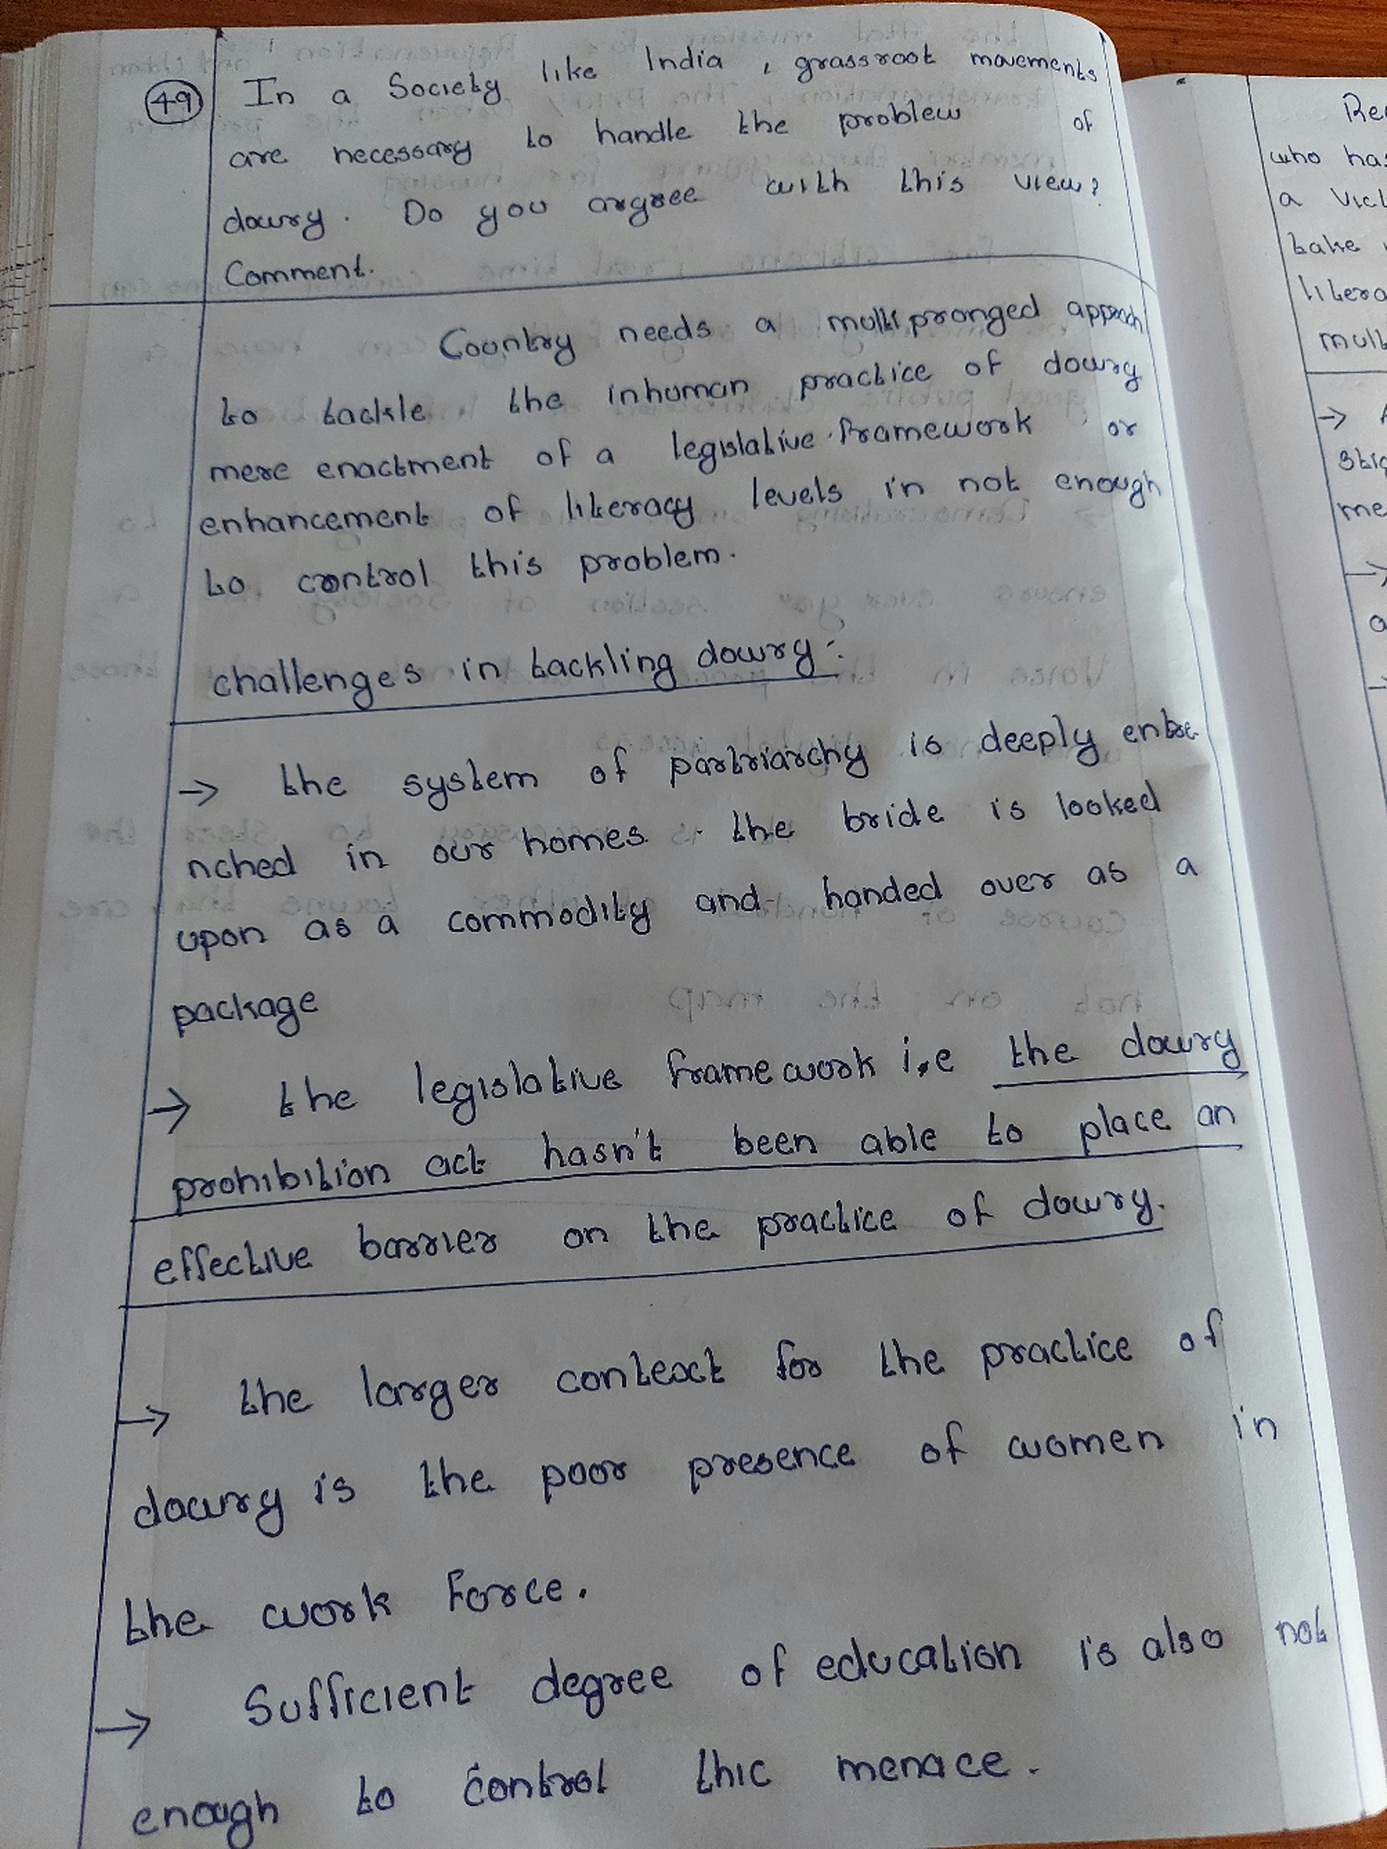 49
In a Society like India, grassroot movements
are necessary to handle the problem of
dowry. Do you argree with this view?
Comment.
Country needs a multipronged appoach
to tackle the inhuman practice of dowry
mere enactment of a legislative framework or
enhancement of literacy levels in not enough
to control this problem.
challenges in tackling dowry:-
→ the system of partriarchy is deeply entre
nched in our homes. the bride is looked
upon as a commodity and handed over as a
package
→ the legislative framework i,e the dowry
prohibition act hasn't been able to place an
effective barrier on the practice of dowry.
→ the larger context for the practice of
dowry is the poor presence of women in
the work force.
→ Sufficient degree of education is also not
enough to control this menace.
who has
a
take
me